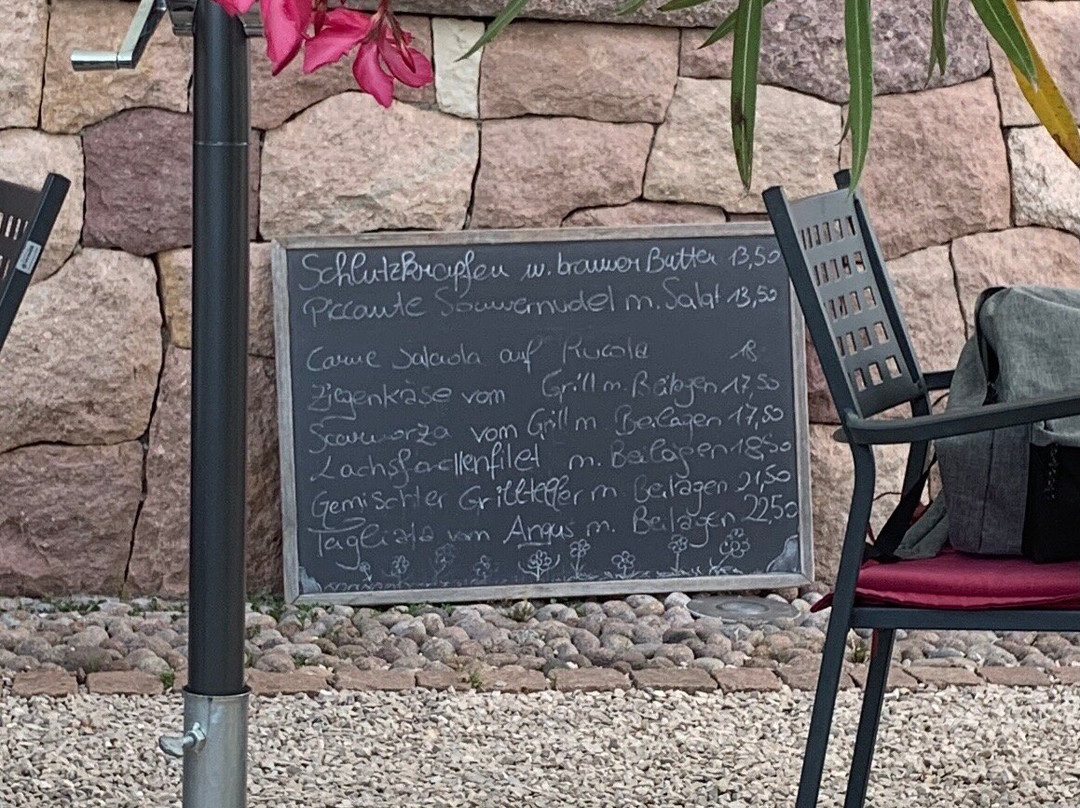 Schlutzkrapfen m. brauner Butter 13,50
Piccante Sauwernudel m. Salat 13,50
Carne Salada auf Rucola 18
Ziegenkäse vom Grill m. Beilagen 17,50
Scamorza vom Grill m Beilagen 17,50
Lachsforllenfilet m. Beilagen 18,50
Gemischter Grillteller m Beilagen 21,50
Tagliata vom Angus m. Beilagen 22,50